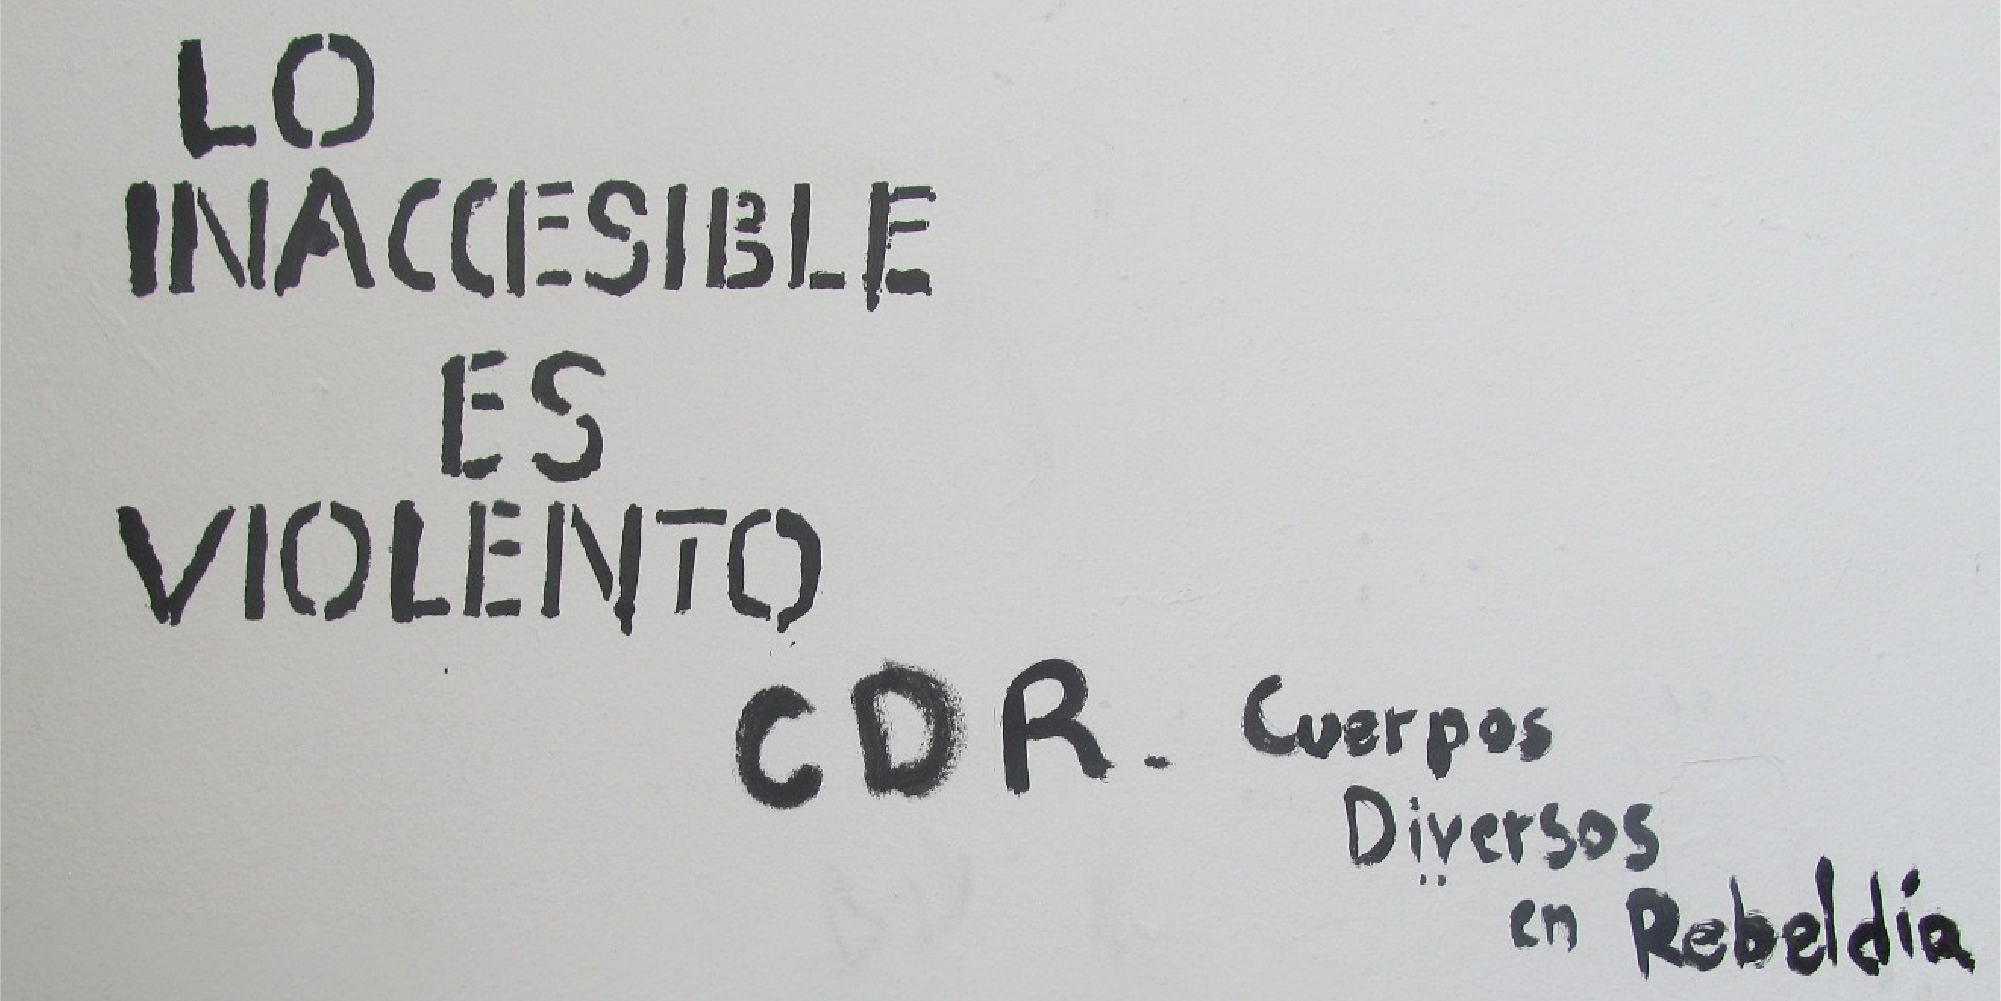 LO
INACCESIBLE
ES
VIOLENTO
CDR. Cuerpos
Diversos
en Rebeldía